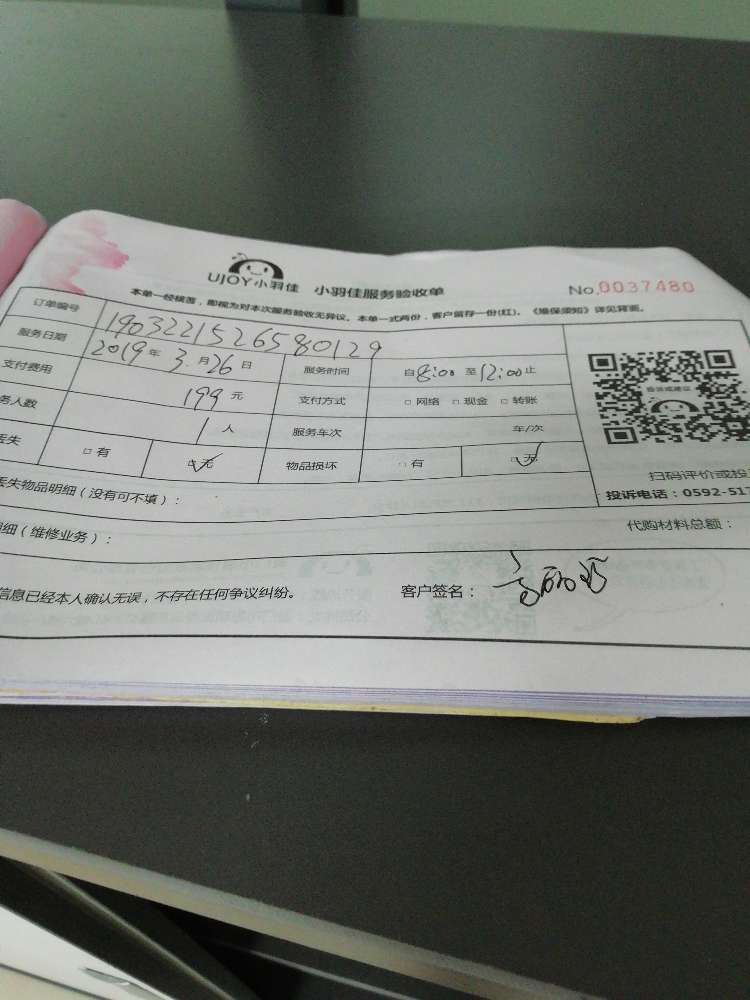 UJOY小羽佳 小羽佳服务验收单 No.0037480
本单一经核签，即视为对本次服务验收无异议。本单一式两份，客户留存一份(红)。《维保须知》详见背面。
订单编号 1903221526580129
服务日期 2019年3月26日 服务时间 自8:00至12:00止
支付费用 199元 支付方式 □网络 □现金 □转账
务人数 1人 服务车次 车/次
丢失 □有 □无 物品损坏 □有 □无
扫码评价或投
丢失物品明细（没有可不填）：
投诉电话：0592-517
细（维修业务）：
代购材料总额：
信息已经本人确认无误，不存在任何争议纠纷。 客户签名：